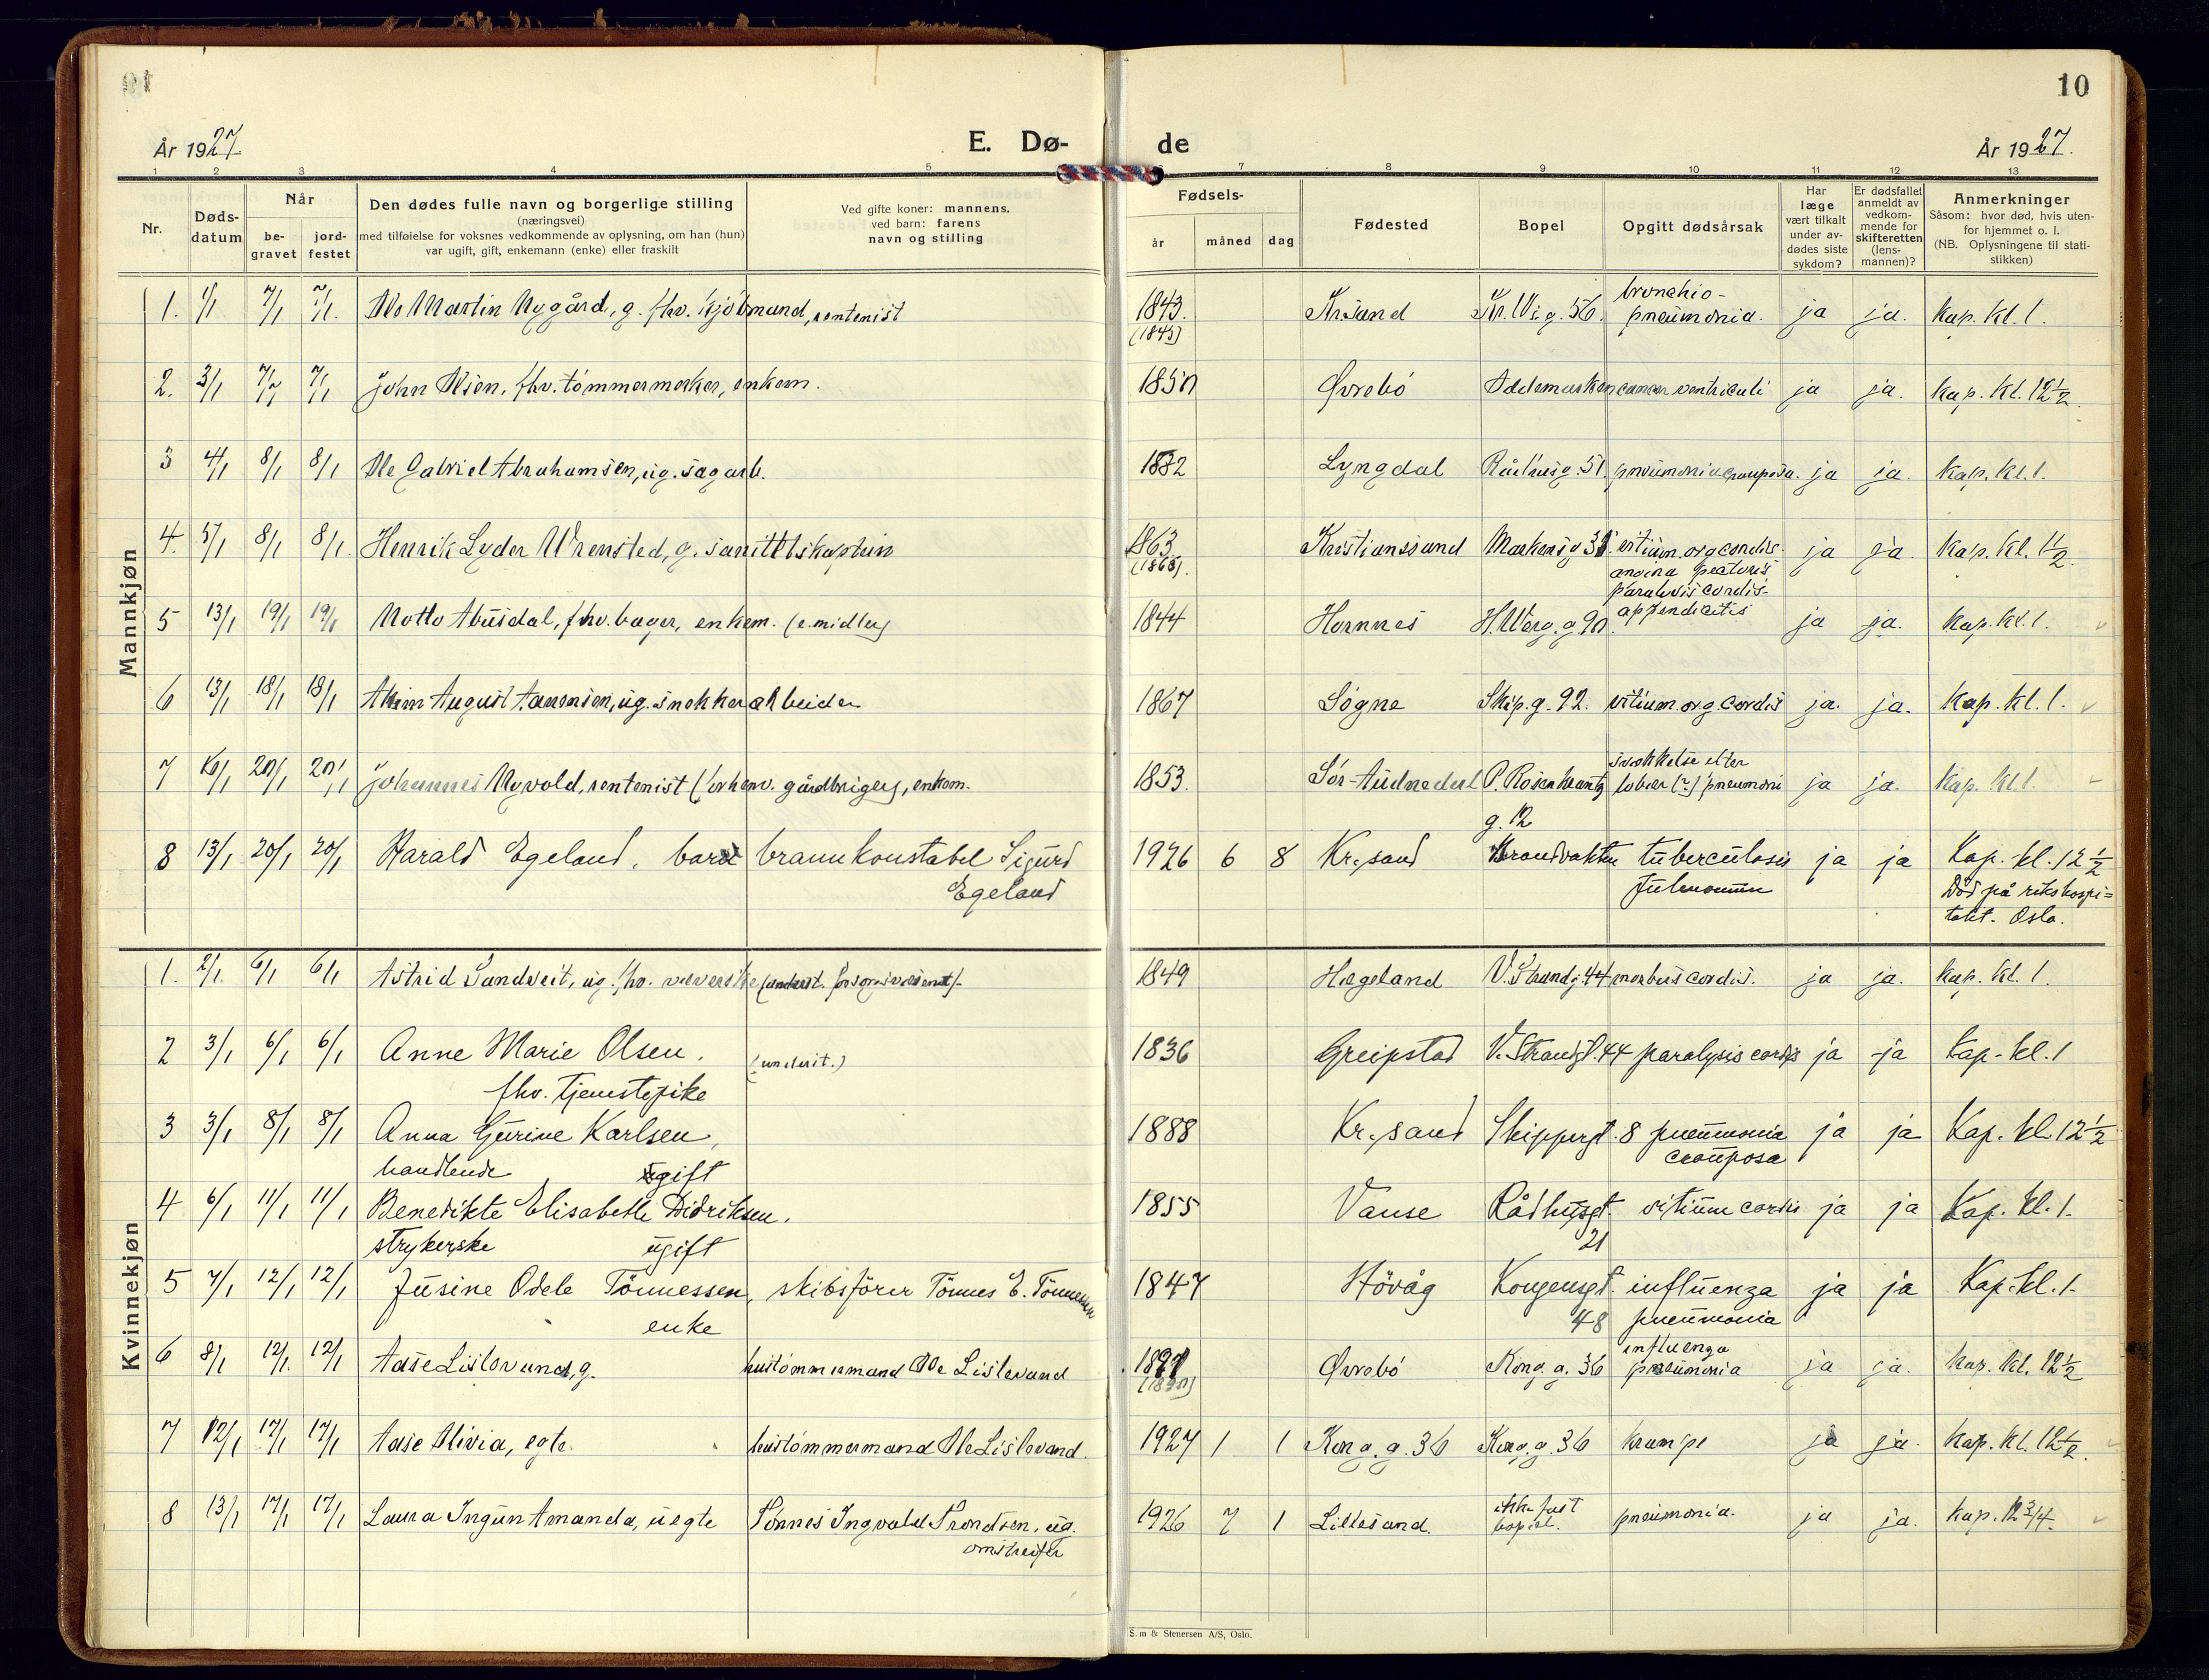 10
År 1927
E. Dø-
de
År 1927.
1 2 3 4 5 7 8 9 10 11 12 13
Nr.
Døds-
datum
Når
be-
gravet
jord-
festet
Den dødes fulle navn og borgerlige stilling
(næringsvei)
med tilføielse for voksnes vedkommende av oplysning, om han (hun)
var ugift, gift, enkemann (enke) eller fraskilt
Ved gifte koner: mannens,
ved barn: farens
navn og stilling
Fødsels-
år
måned
dag
Fødested
Bopel
Opgitt dødsårsak
Har
læge
vært tilkalt
under av-
dødes siste
sykdom?
Er dødsfallet
anmeldt av
vedkom-
mende for
skifteretten
(lens-
mannen)?
Anmerkninger
Såsom: hvor død, hvis uten-
for hjemmet o. l.
(NB. Oplysningene til stati-
stikken)
Mannkjøn
1. 1/1 7/1 7/1. Ole Martin Nygård, g. fhv. kjøbmand, rentenist 1843. (1845) Kr.sand Kr. IV g. 56. bronchio-
pneumonia. ja ja. Kap. kl. 1.
2. 3/1 7/1 7/1 John Olsen, fhv. tömmermerker, enkem. 1850 Øvrebö Oddemarken cancer ventriculi ja ja. Kap. kl. 12 1/2.
3 4/1 8/1 8/1 Ole Gabriel Abrahamsen, ug. sagarb. 1882 Lyngdal Rådhusg. 51. pneumonia crouposa. ja ja. Kap. kl. 1.
4. 5/1 8/1 8/1. Henrik Lyder Wrensted, g. sanitetskaptein 1863 (1868). Kristianssand Markensg 38 vitium org cordis.
angina pectoris
paralysis cordis ja ja Kap. kl. 1 1/2.
5 13/1 19/1 19/1 Notto Abusdal, fhv. bager, enkem. (e. midler) 1844 Hornnes H. Werg. g 90. appendicitis ja ja. Kap. kl. 1.
6 13/1 18/1 18/1 August Aanensen, ug. snekkerarbeider 1867 Sögne Skip. g. 92. vitium. org. cordis ja. ja. Kap. kl. 1.
7 16/1 20/1 20/1 Johannes Nyvold, rentenist (forhenv. gårdbruger), enkem. 1853. Sör-Audnedal P. Rosenkrantz
g. 12 svekkelse efter
lobær (?) pneumoni ja ja. Kap. kl. 1
8 13/1 20/1 20/1 Harald Egeland. barn brannkonstabel Sigurd
Egeland 1926 6 8 Kr.sand Brandvakten tuberculosis
pulmonum ja ja Kap. kl. 12 1/2
Död på rikshospi=
talet. Oslo.
Kvinnekjøn
1. 2/1. 6/1 6/1 Astrid Sandveit, ug. fhv. veverske (underst. forsorgsvesenet). 1849 Hægeland V. Strandg. 44 morbus cordis. ja ja. Kap. kl. 1.
2 3/1 6/1 6/1 Anne Marie Olsen. (underst.)
fhv. tjenestepike 1836 Greipstad V. Strandgt. 44 paralysis cordis ja ja Kap. kl. 1
3 3/1 8/1 8/1 Anna Gurine Karlsen,
handlende ugift 1888 Kr.sand Skippergt. 8 pneumonia
crouposa ja ja Kap. kl. 12 1/2
4 6/1 11/1 11/1 Benedikte Elisabeth Didriksen.
strykerske ugift 1855 Vanse Rådhusgt.
21 vitium cordis ja ja Kap. kl. 1.
5 7/1 12/1 12/1 Jusine Odele Tönnessen, skibsförer Tönnes E. Tönnessen
enke 1847 Hövåg Kongensgt.
48 influenza
pneumonia ja ja Kap. kl. 1.
6 8/1 12/1. 12/1 Aase Lislevand, g. hustömmermand Ole Lislevand 1891 Øvrebö Kong. g. 36 influenza
pneumonia ja ja. Kap. kl. 12 1/2
7 12/1 17/1 17/1 Aase Olivia, egte. hustömmermand Ole Lislevand. 1927 1 1 Kong. g. 36 Kong. g. 36 krampe ja ja. Kap. kl. 12 1/2.
8 13/1 17/1 17/1 Laura Ingun Amanda, uegte Tönnes Ingvald Trondsen. ug.
omstreifer 1926 7 1 Lillesand. ikke fast
bopæl. pneumonia. ja ja. Kap. 12 3/4.
S. m & Stenersen A/S, Oslo.